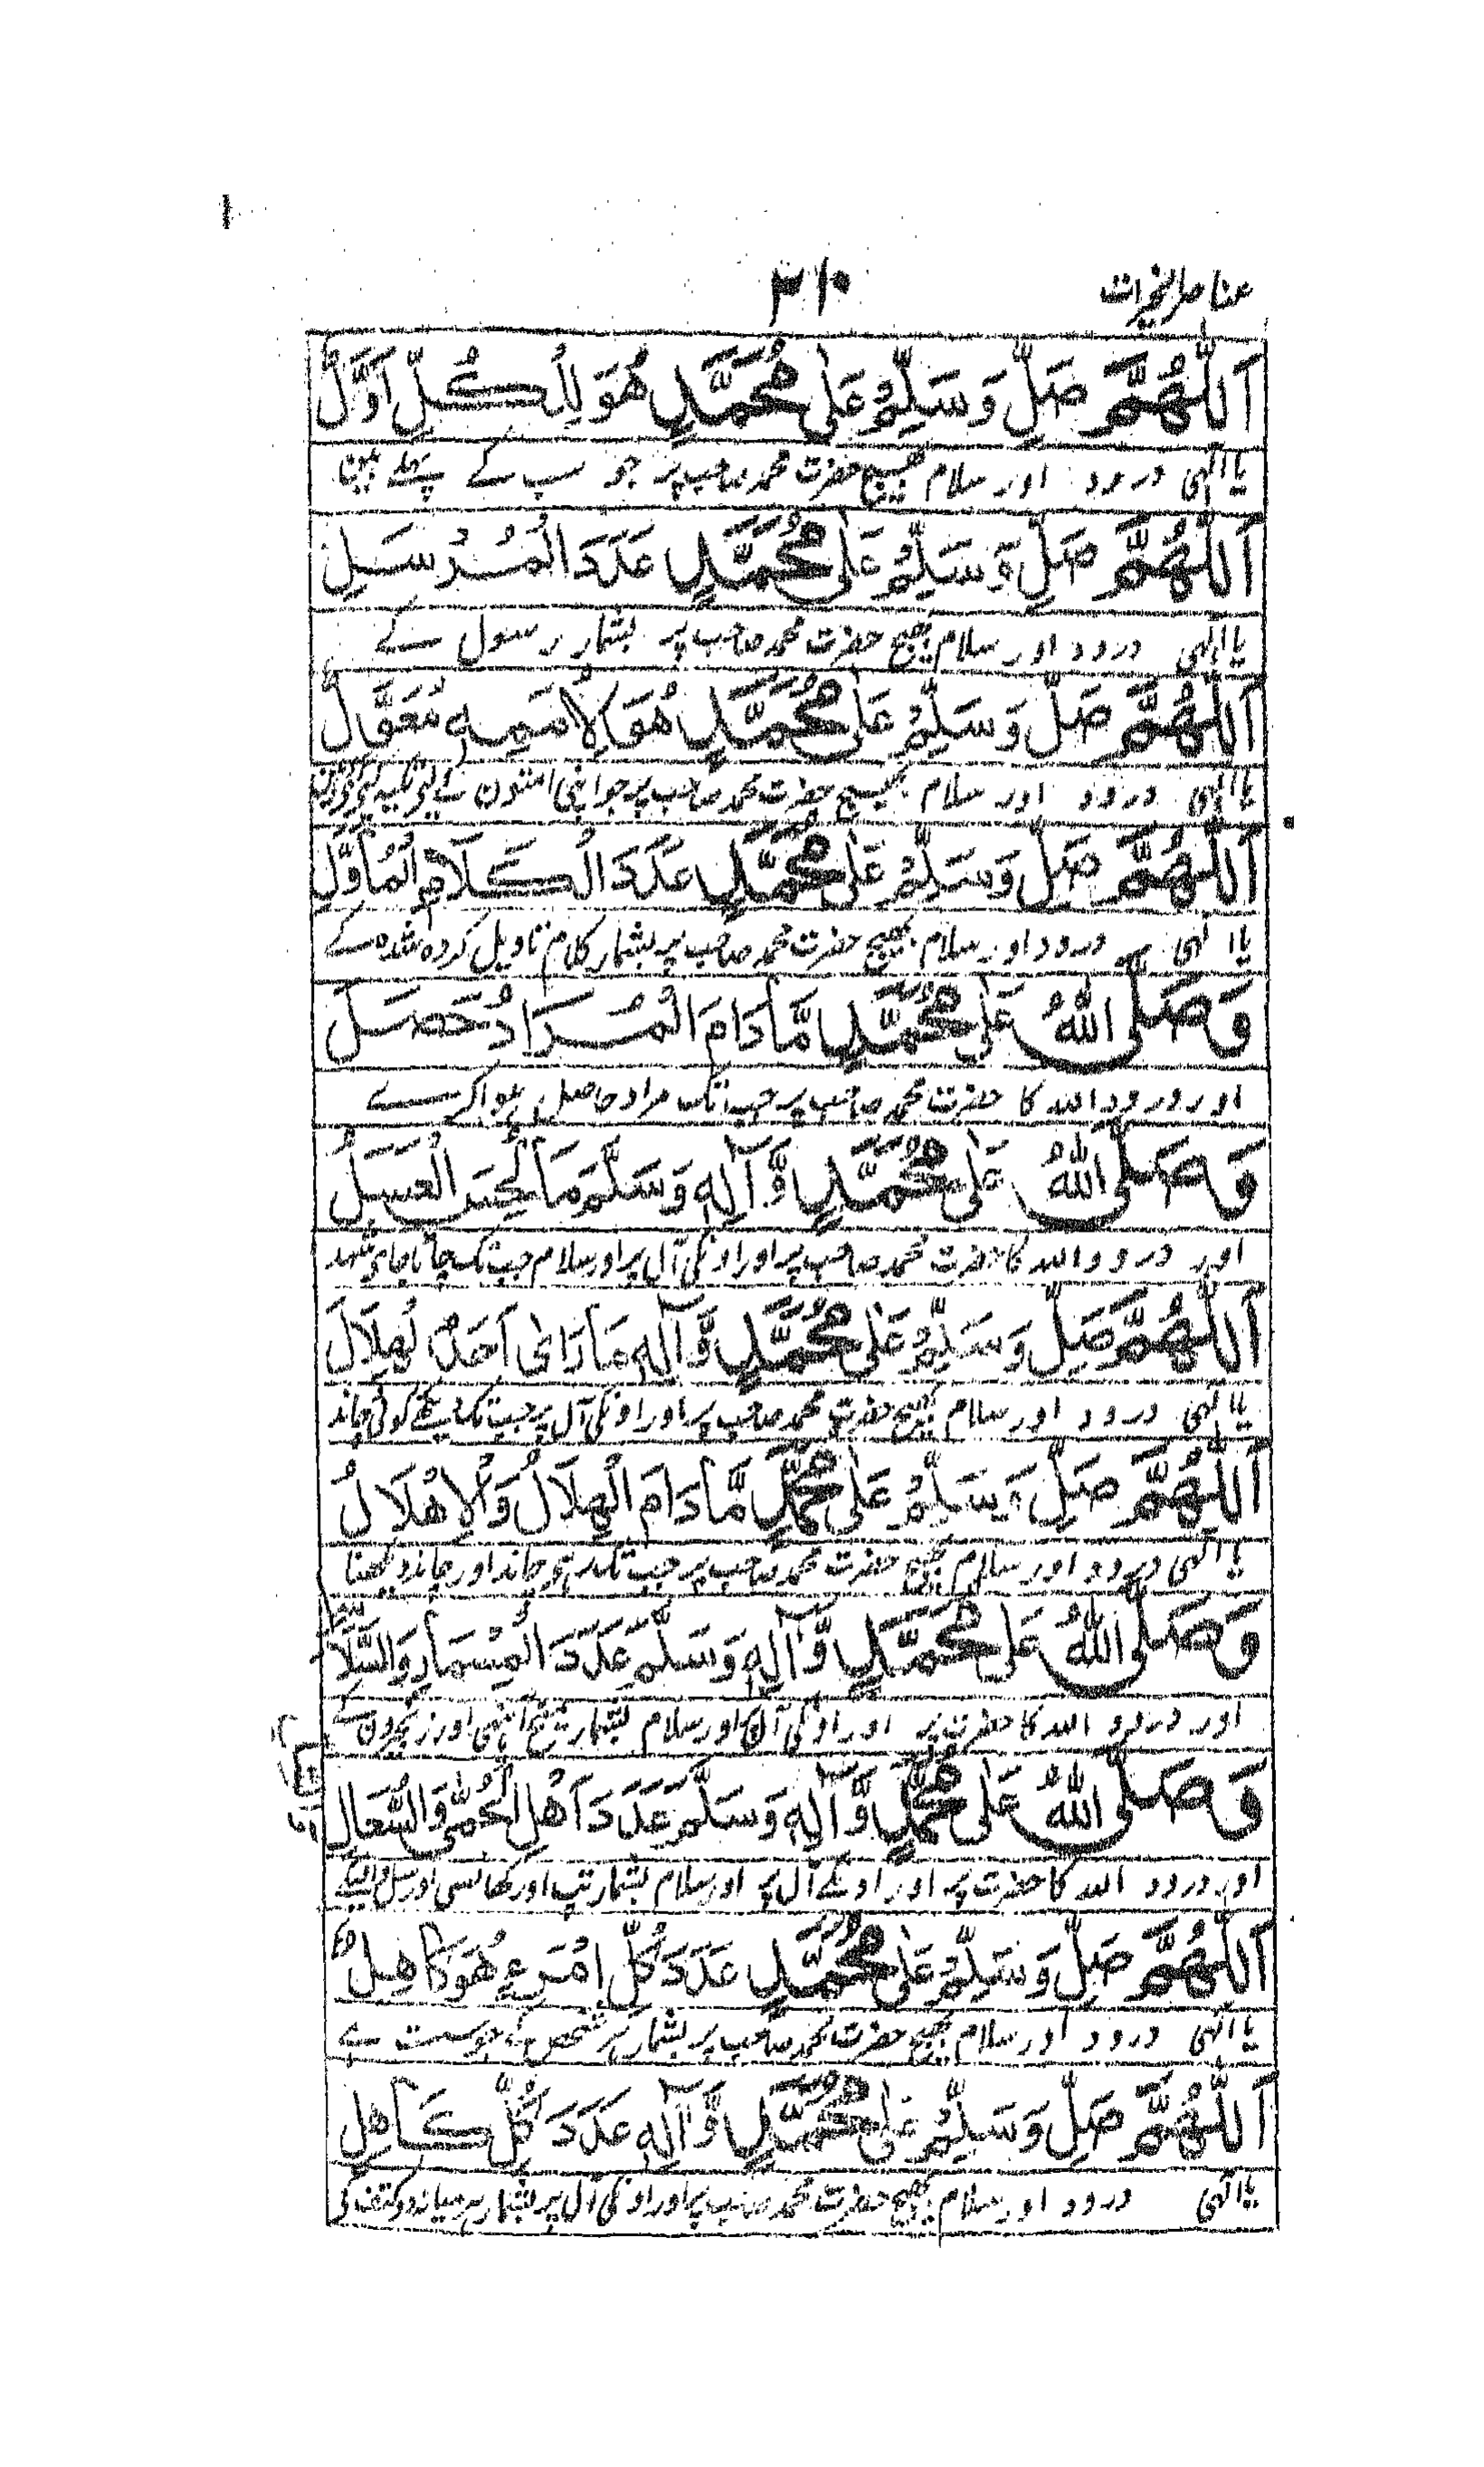 عناصر الخیرات ۳۱۰
اَللّٰهُمَّ صَلِّ وَسَلِّمْ عَلٰی مُحَمَّدٍ هُوَ لِلْكُلِّ اَوَّلُ
یا الٰہی درود اور سلام بھیج حضرت محمد صاحب پر جو سب کے پہلے ہین
اَللّٰهُمَّ صَلِّ وَسَلِّمْ عَلٰی مُحَمَّدٍ عَدَدَ الْمُرْسَلِ
یا الٰہی درود اور سلام بھیج حضرت محمد صاحب پر بشمار رسول کے
اَللّٰهُمَّ صَلِّ وَسَلِّمْ عَلٰی مُحَمَّدٍ هُوَ لِاُمَمِهٖ مُعَوَّلُ
یا الٰہی درود اور سلام بھیج حضرت محمد صاحب پر جو اپنی امتون کے لیے تکیہ
اَللّٰهُمَّ صَلِّ وَسَلِّمْ عَلٰی مُحَمَّدٍ عَدَدَ الْكَلَامِ الْمُأَوَّلِ
یا الٰہی درود اور سلام بھیج حضرت محمد صاحب پر بشمار کلام تاویل کردہ شدہ کے
وَصَلَّی اللهُ عَلٰی مُحَمَّدٍ مَّا دَامَ الْمُرَادُ حَصَلَ
اور درود اللہ کا حضرت محمد صاحب پر جب تک مراد حاصل ہوا کرے
وَصَلَّی اللهُ عَلٰی مُحَمَّدٍ وَّآلِهٖ وَسَلَّمَ مَا لُحِسَ الْعَسَلُ
اور درود اللہ کا حضرت محمد صاحب پر اور اونکی آل پر اور سلام جب تک چاٹا جای شہد
اَللّٰهُمَّ صَلِّ وَسَلِّمْ عَلٰی مُحَمَّدٍ وَّآلِهٖ مَا رَاٰی اَحَدٌ نِ هِلَالَ
یا الٰہی درود اور سلام بھیج حضرت محمد صاحب پر اور اونکی آل پر جب تک دیکھے کوئی چاند
اَللّٰهُمَّ صَلِّ وَسَلِّمْ عَلٰی مُحَمَّدٍ مَّا دَامَ الْهِلَالُ وَالْاِهْلَالُ
یا الٰہی درود اور سلام بھیج حضرت محمد صاحب پر جب تک ہو چاند اور چاند دیکھنا
وَصَلَّی اللهُ عَلٰی مُحَمَّدٍ وَّآلِهٖ وَسَلَّمَ عَدَدَ الْمِسْمَارِ وَالسَّلَاسِلِ
اور درود اللہ کا حضرت پر اور اونکی آل پر اور سلام بشمار میخ آہنی اور زنجیرون کے
وَصَلَّی اللهُ عَلٰی مُحَمَّدٍ وَّآلِهٖ وَسَلَّمَ عَدَدَ اَهْلِ الْحُمّٰی وَالسُّعَالِ
اور درود اللہ کا حضرت پر اور اونکے آل پر اور سلام بشمار تپ اور کھانسی اور سل والیکے
اَللّٰهُمَّ صَلِّ وَسَلِّمْ عَلٰی مُحَمَّدٍ عَدَدَ كُلِّ امْرَءٍ هُوَ كَاهِلُ
یا الٰہی درود اور سلام بھیج حضرت محمد صاحب پر بشمار ہر شخص کے جو سست ہے
اَللّٰهُمَّ صَلِّ وَسَلِّمْ عَلٰی مُحَمَّدٍ وَّآلِهٖ عَدَدَ كُلِّ كَاهِلِ
یا الٰہی درود اور سلام بھیج حضرت محمد صاحب پر اور اونکی آل پر بشمار ہر میانہ دو کتف کی